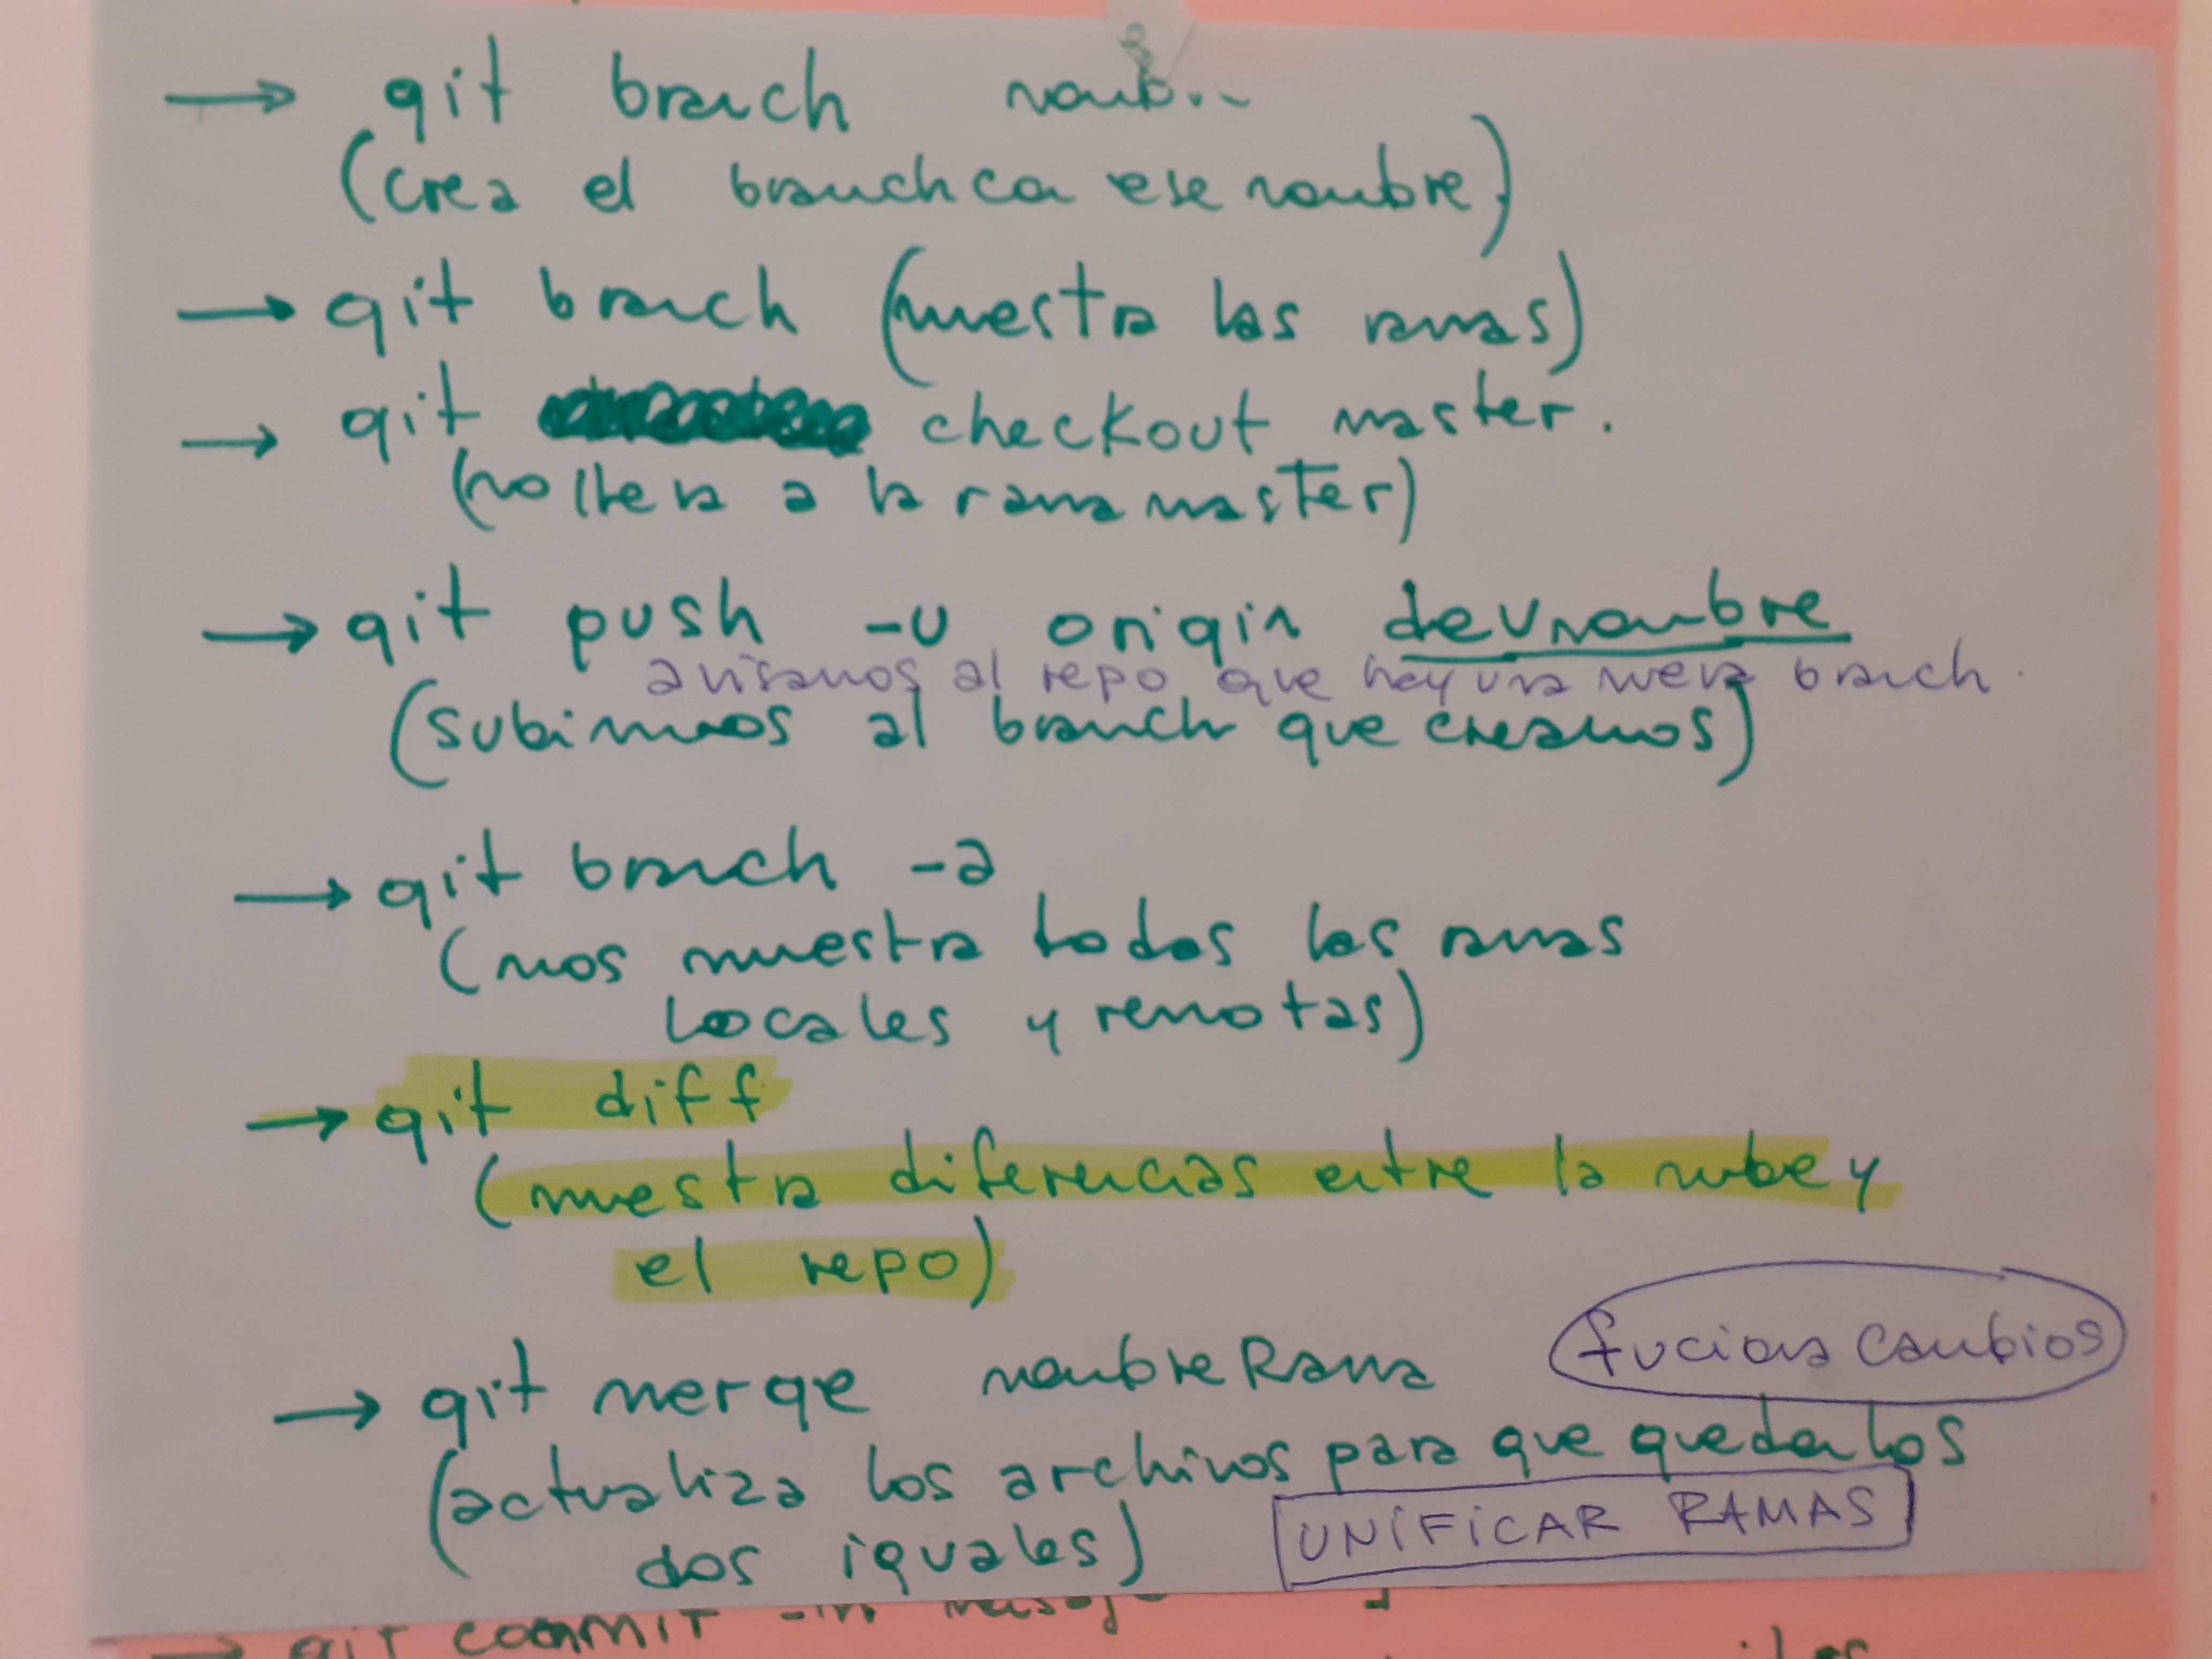 → git branch nomb..
(crea el branch con ese nombre)
→ git branch (muestra las ramas)
→ git checkout master.
(no lleva a la rama master)
→ git push -u origin devnombre
avisamos al repo que hay una nueva branch.
(subimos al branch que creamos)
→ git branch -a
(nos muestra todas las ramas
locales y remotas)
→ git diff
(muestra diferencias entre la nube y
el repo)
fuciona cambios
→ git merge nombreRama
(actualiza los archivos para que queden los
dos iguales)
UNIFICAR RAMAS
→ git commit -m